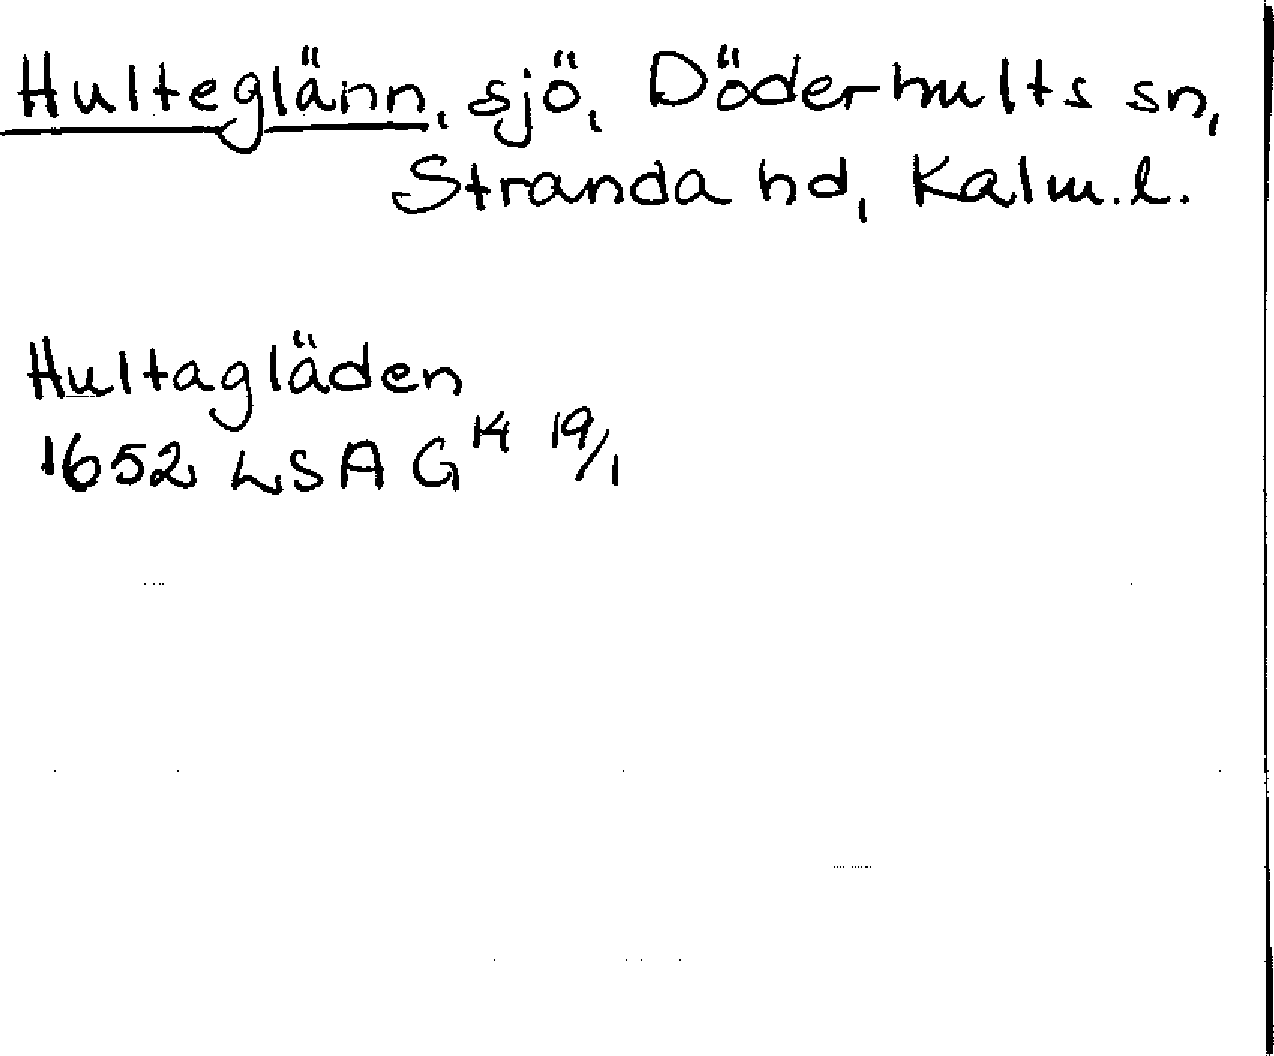 Hulteglänn, sjö, Döderhults sn,
Stranda hd, Kalm.l.
Hultagläden
1652 LSA G14 19/1